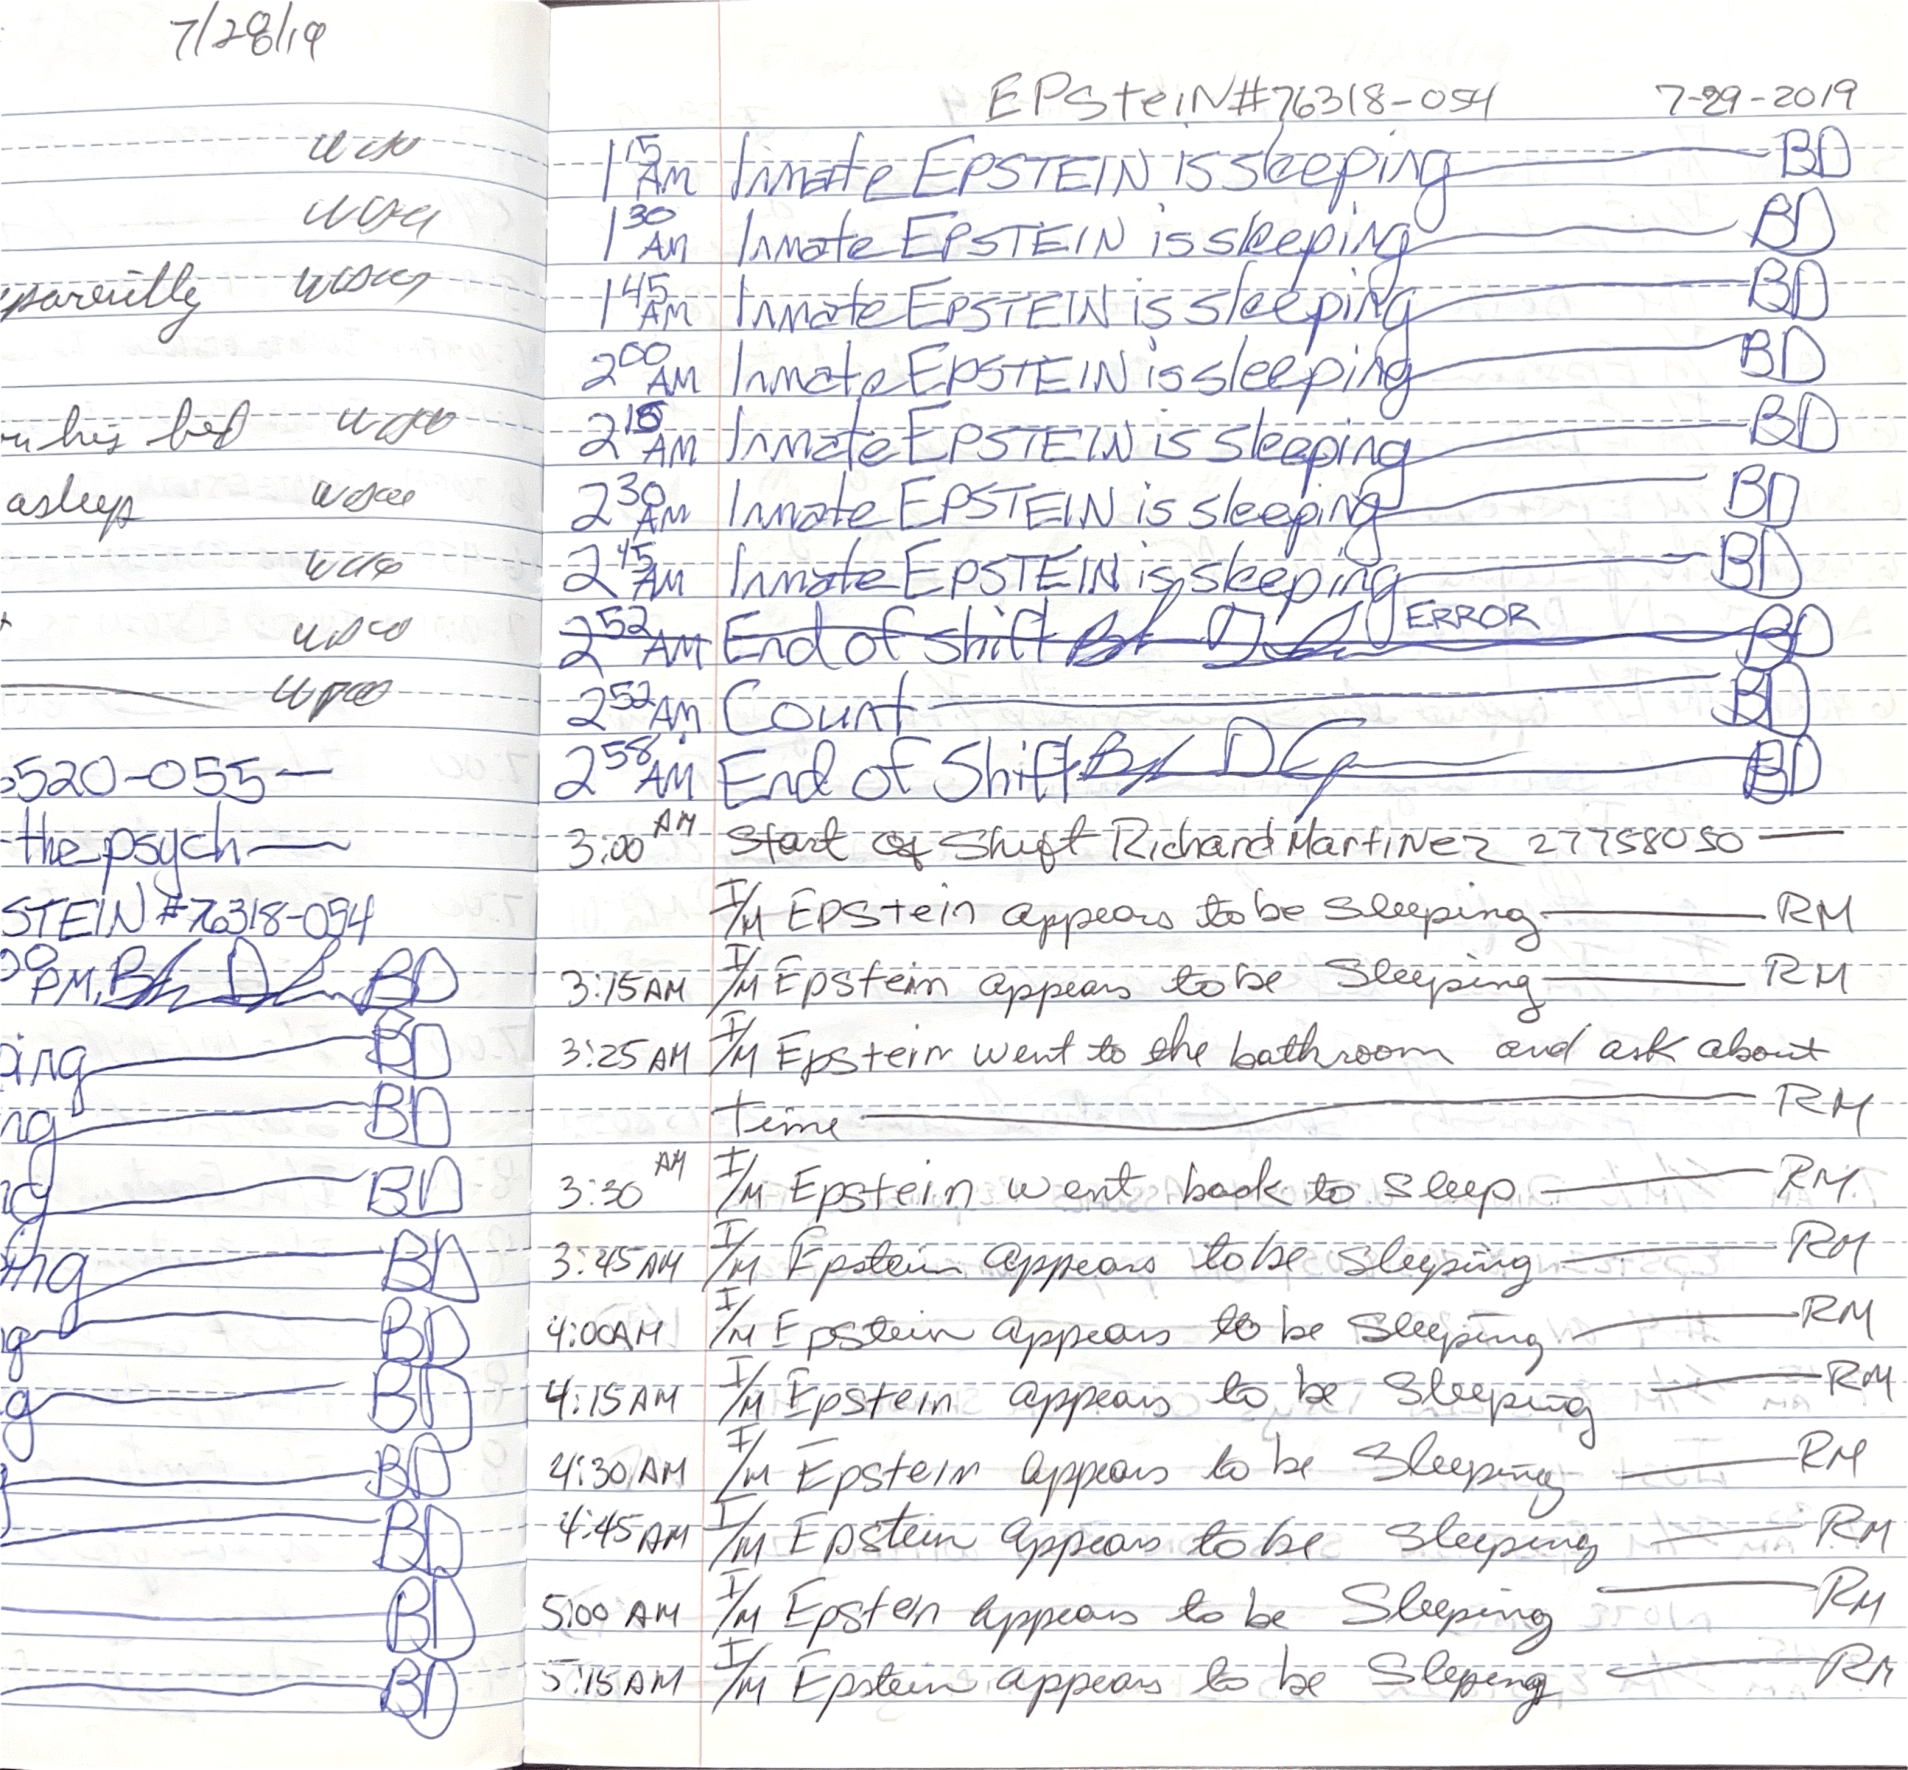 7/28/19
parently
his bed
asleep
520-055
the psych
STEIN #76318-054
PM, BD
ing BD
ng BD
g BD
ing BD
g BD
g BD
BD
BD
BD
BD
EPSteiN #76318-054 7-29-2019
1 15 AM Inmate EPSTEIN is sleeping BD
1 30 AM Inmate EPSTEIN is sleeping BD
1 45 AM Inmate EPSTEIN is sleeping BD
2 00 AM Inmate EPSTEIN is sleeping BD
2 15 AM Inmate EPSTEIN is sleeping BD
2 30 AM Inmate EPSTEIN is sleeping BD
2 45 AM Inmate EPSTEIN is sleeping BD
2 52 AM End of shift ERROR BD
2 52 AM Count BD
2 58 AM End of Shift BD
3:00 AM Start of Shift Richard Martinez 27758050
I/M Epstein appears to be Sleeping RM
3:15 AM I/M Epstein appears to be Sleeping RM
3:25 AM I/M Epstein went to the bathroom and ask about
time RM
3:30 AM I/M Epstein went back to sleep RM
3:45 AM I/M Epstein appears to be Sleeping RM
4:00 AM I/M Epstein appears to be Sleeping RM
4:15 AM I/M Epstein appears to be Sleeping RM
4:30 AM I/M Epstein appears to be Sleeping RM
4:45 AM I/M Epstein appears to be Sleeping RM
5:00 AM I/M Epsten appears to be Sleeping RM
5:15 AM I/M Epstein appears to be Sleping RM